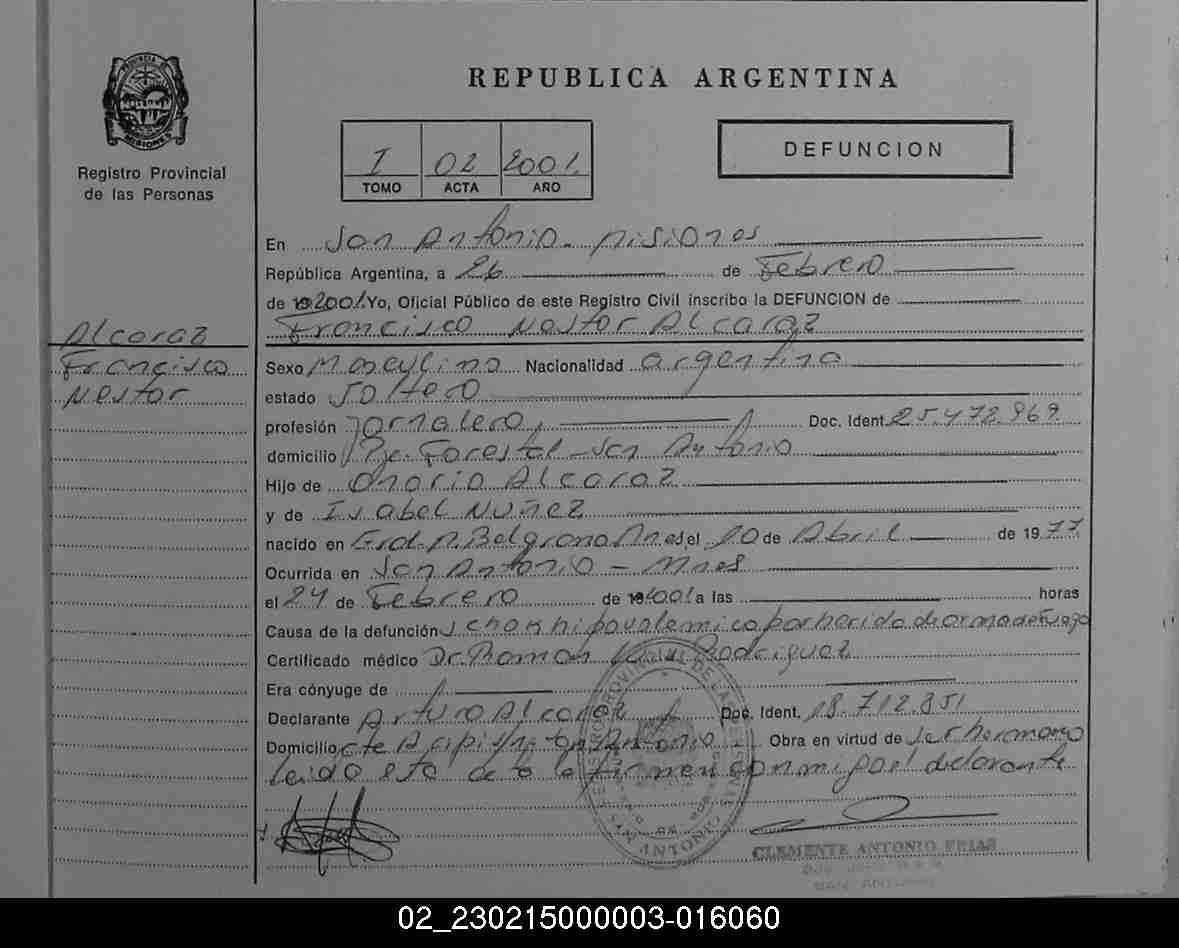 REPUBLICA ARGENTINA
Registro Provincial
de las Personas
I 02 2001
TOMO ACTA AÑO
DEFUNCION
Alcoraz
Francisco
Nestor
En San Antonio - Misiones
República Argentina, a 26 de Febrero
de 19 2001. Yo, Oficial Público de este Registro Civil inscribo la DEFUNCION de
Francisco Nestor Alcaraz
Sexo Masculino Nacionalidad argentina
estado Soltero
profesión Jornalero, Doc. Ident. 25.472.969
domicilio Pje. Forestal - San Antonio
Hijo de Onorio Alcaraz
y de Isabel Nuñez
nacido en Gral. M. Belgrano Mnes el 20 de Abril de 1977
Ocurrida en San Antonio - Mnes
el 24 de Febrero de 2001 a las horas
Causa de la defunción Schok hipovolemico por herida de arma de Fuego
Certificado médico Dr. Ramon Rodriguez
Era cónyuge de
Declarante Arturo Alcaraz Doc. Ident. 18.712.351
Domicilio San Antonio Obra en virtud de ser hermano
leido esta acta la firman con mi el declarante
CLEMENTE ANTONIO FRIAS
SAN ANTONIO
02_230215000003-016060